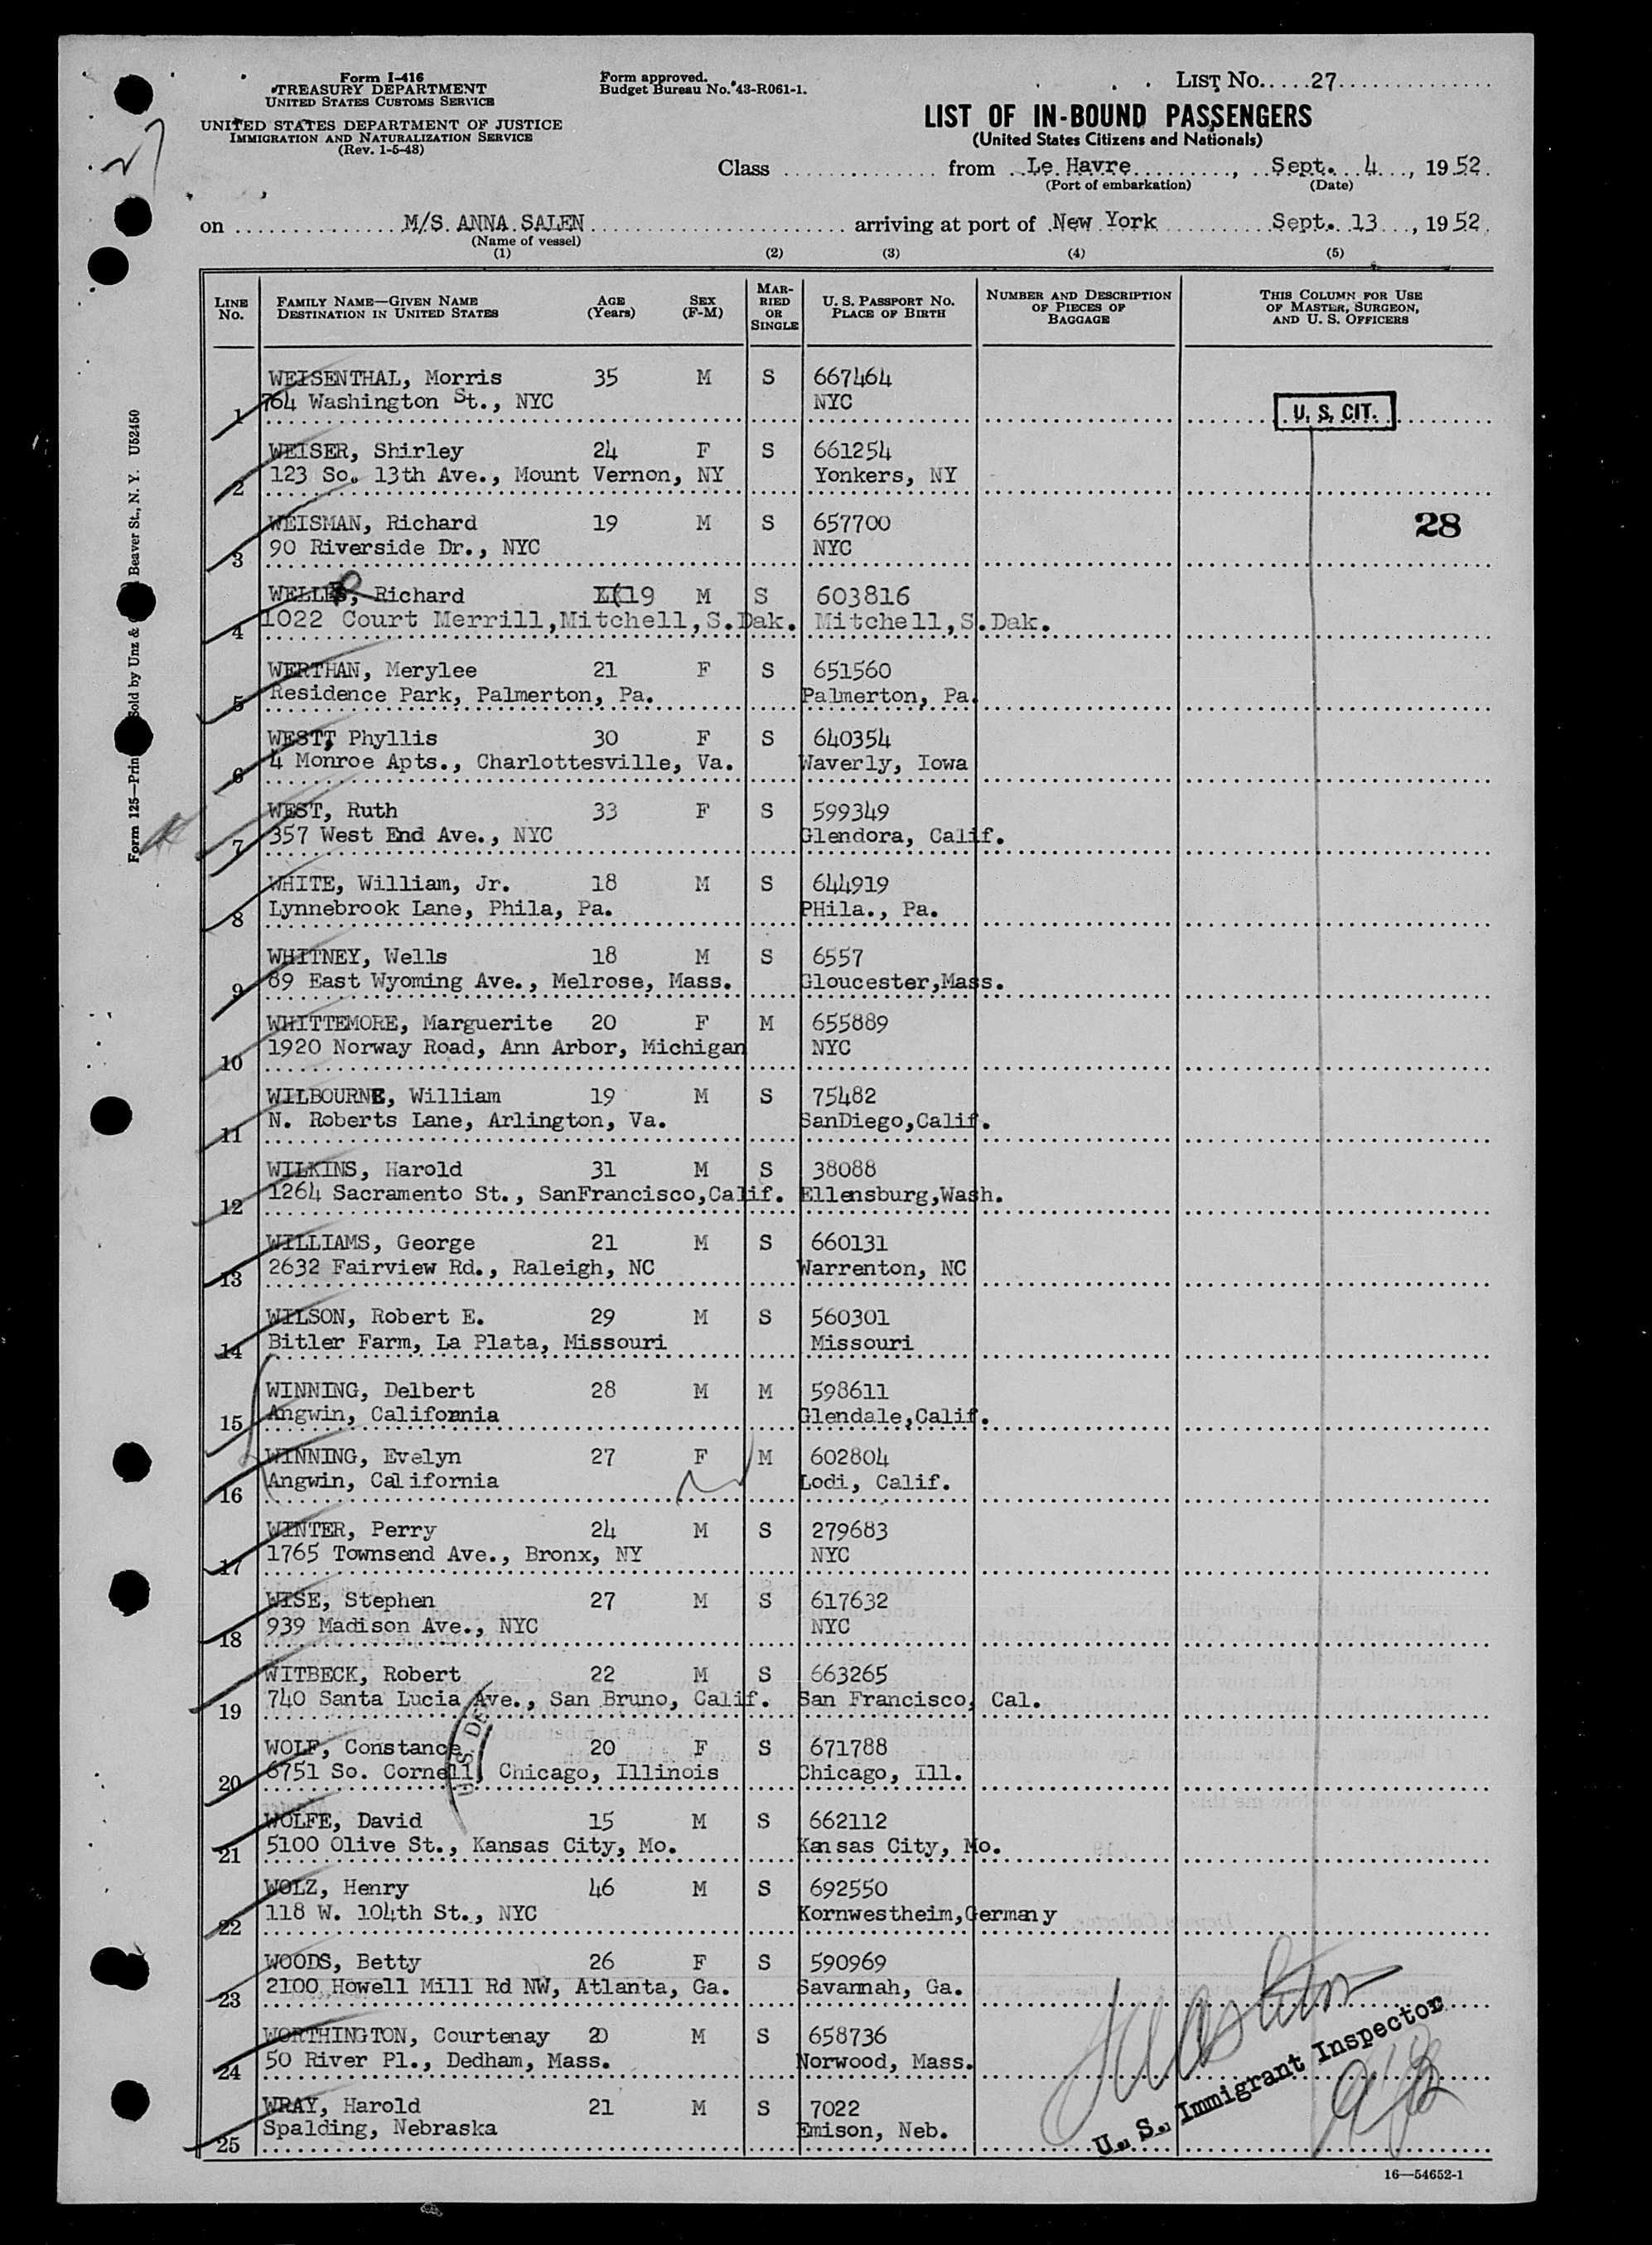 Form I-416
TREASURY DEPARTMENT
UNITED STATES CUSTOMS SERVICE
UNITED STATES DEPARTMENT OF JUSTICE
IMMIGRATION AND NATURALIZATION SERVICE
(Rev. 1-5-48)
Form approved.
Budget Bureau No. 43-R061-1.
LIST No. 27
LIST OF IN-BOUND PASSENGERS
(United States Citizens and Nationals)
Class from Le Havre, Sept. 4, 1952
(Port of embarkation) (Date)
on M/S ANNA SALEN arriving at port of New York Sept. 13, 1952
(Name of vessel)
(1) (2) (3) (4) (5)
LINE No. FAMILY NAME—GIVEN NAME DESTINATION IN UNITED STATES AGE (Years) SEX (F-M) MARRIED OR SINGLE U. S. PASSPORT No. PLACE OF BIRTH NUMBER AND DESCRIPTION OF PIECES OF BAGGAGE THIS COLUMN FOR USE OF MASTER, SURGEON, AND U. S. OFFICERS
WEISENTHAL, Morris 35 M S 667464
1 764 Washington St., NYC NYC U. S. CIT.
WEISER, Shirley 24 F S 661254
2 123 So. 13th Ave., Mount Vernon, NY Yonkers, NY
WEISMAN, Richard 19 M S 657700 28
3 90 Riverside Dr., NYC NYC
Richard 19 M S 603816
4 1022 Court Merrill,Mitchell,S.Dak. Mitchell,S.Dak.
WERTHAN, Merylee 21 F S 651560
5 Residence Park, Palmerton, Pa. Palmerton, Pa.
WESTT, Phyllis 30 F S 640354
6 4 Monroe Apts., Charlottesville, Va. Waverly, Iowa
WEST, Ruth 33 F S 599349
7 357 West End Ave., NYC Glendora, Calif.
WHITE, William, Jr. 18 M S 644919
8 Lynnebrook Lane, Phila, Pa. PHila., Pa.
WHITNEY, Wells 18 M S 6557
9 89 East Wyoming Ave., Melrose, Mass. Gloucester,Mass.
WHITTEMORE, Marguerite 20 F M 655889
10 1920 Norway Road, Ann Arbor, Michigan NYC
WILBOURNE, William 19 M S 75482
11 N. Roberts Lane, Arlington, Va. SanDiego,Calif.
WILKINS, Harold 31 M S 38088
12 1264 Sacramento St., SanFrancisco,Calif. Ellensburg,Wash.
WILLIAMS, George 21 M S 660131
13 2632 Fairview Rd., Raleigh, NC Warrenton, NC
WILSON, Robert E. 29 M S 560301
14 Bitler Farm, La Plata, Missouri Missouri
WINNING, Delbert 28 M M 598611
15 Angwin, California Glendale,Calif.
WINNING, Evelyn 27 F M 602804
16 Angwin, California Lodi, Calif.
WINTER, Perry 24 M S 279683
17 1765 Townsend Ave., Bronx, NY NYC
WISE, Stephen 27 M S 617632
18 939 Madison Ave., NYC NYC
WITBECK, Robert 22 M S 663265
19 740 Santa Lucia Ave., San Bruno, Calif. San Francisco, Cal.
WOLF, Constance 20 F S 671788
20 6751 So. Cornell, Chicago, Illinois Chicago, Ill.
WOLFE, David 15 M S 662112
21 5100 Olive St., Kansas City, Mo. Kansas City, Mo.
WOLZ, Henry 46 M S 692550
22 118 W. 104th St., NYC Kornwestheim,Germany
WOODS, Betty 26 F S 590969
23 2100 Howell Mill Rd NW, Atlanta, Ga. Savannah, Ga.
WORTHINGTON, Courtenay 20 M S 658736
24 50 River Pl., Dedham, Mass. Norwood, Mass.
WRAY, Harold 21 M S 7022
25 Spalding, Nebraska Emison, Neb.
U. S. Immigrant Inspector
16—54652-1
Beaver St., N. Y. U52450
Sold by Unz &
Form 125—Prin